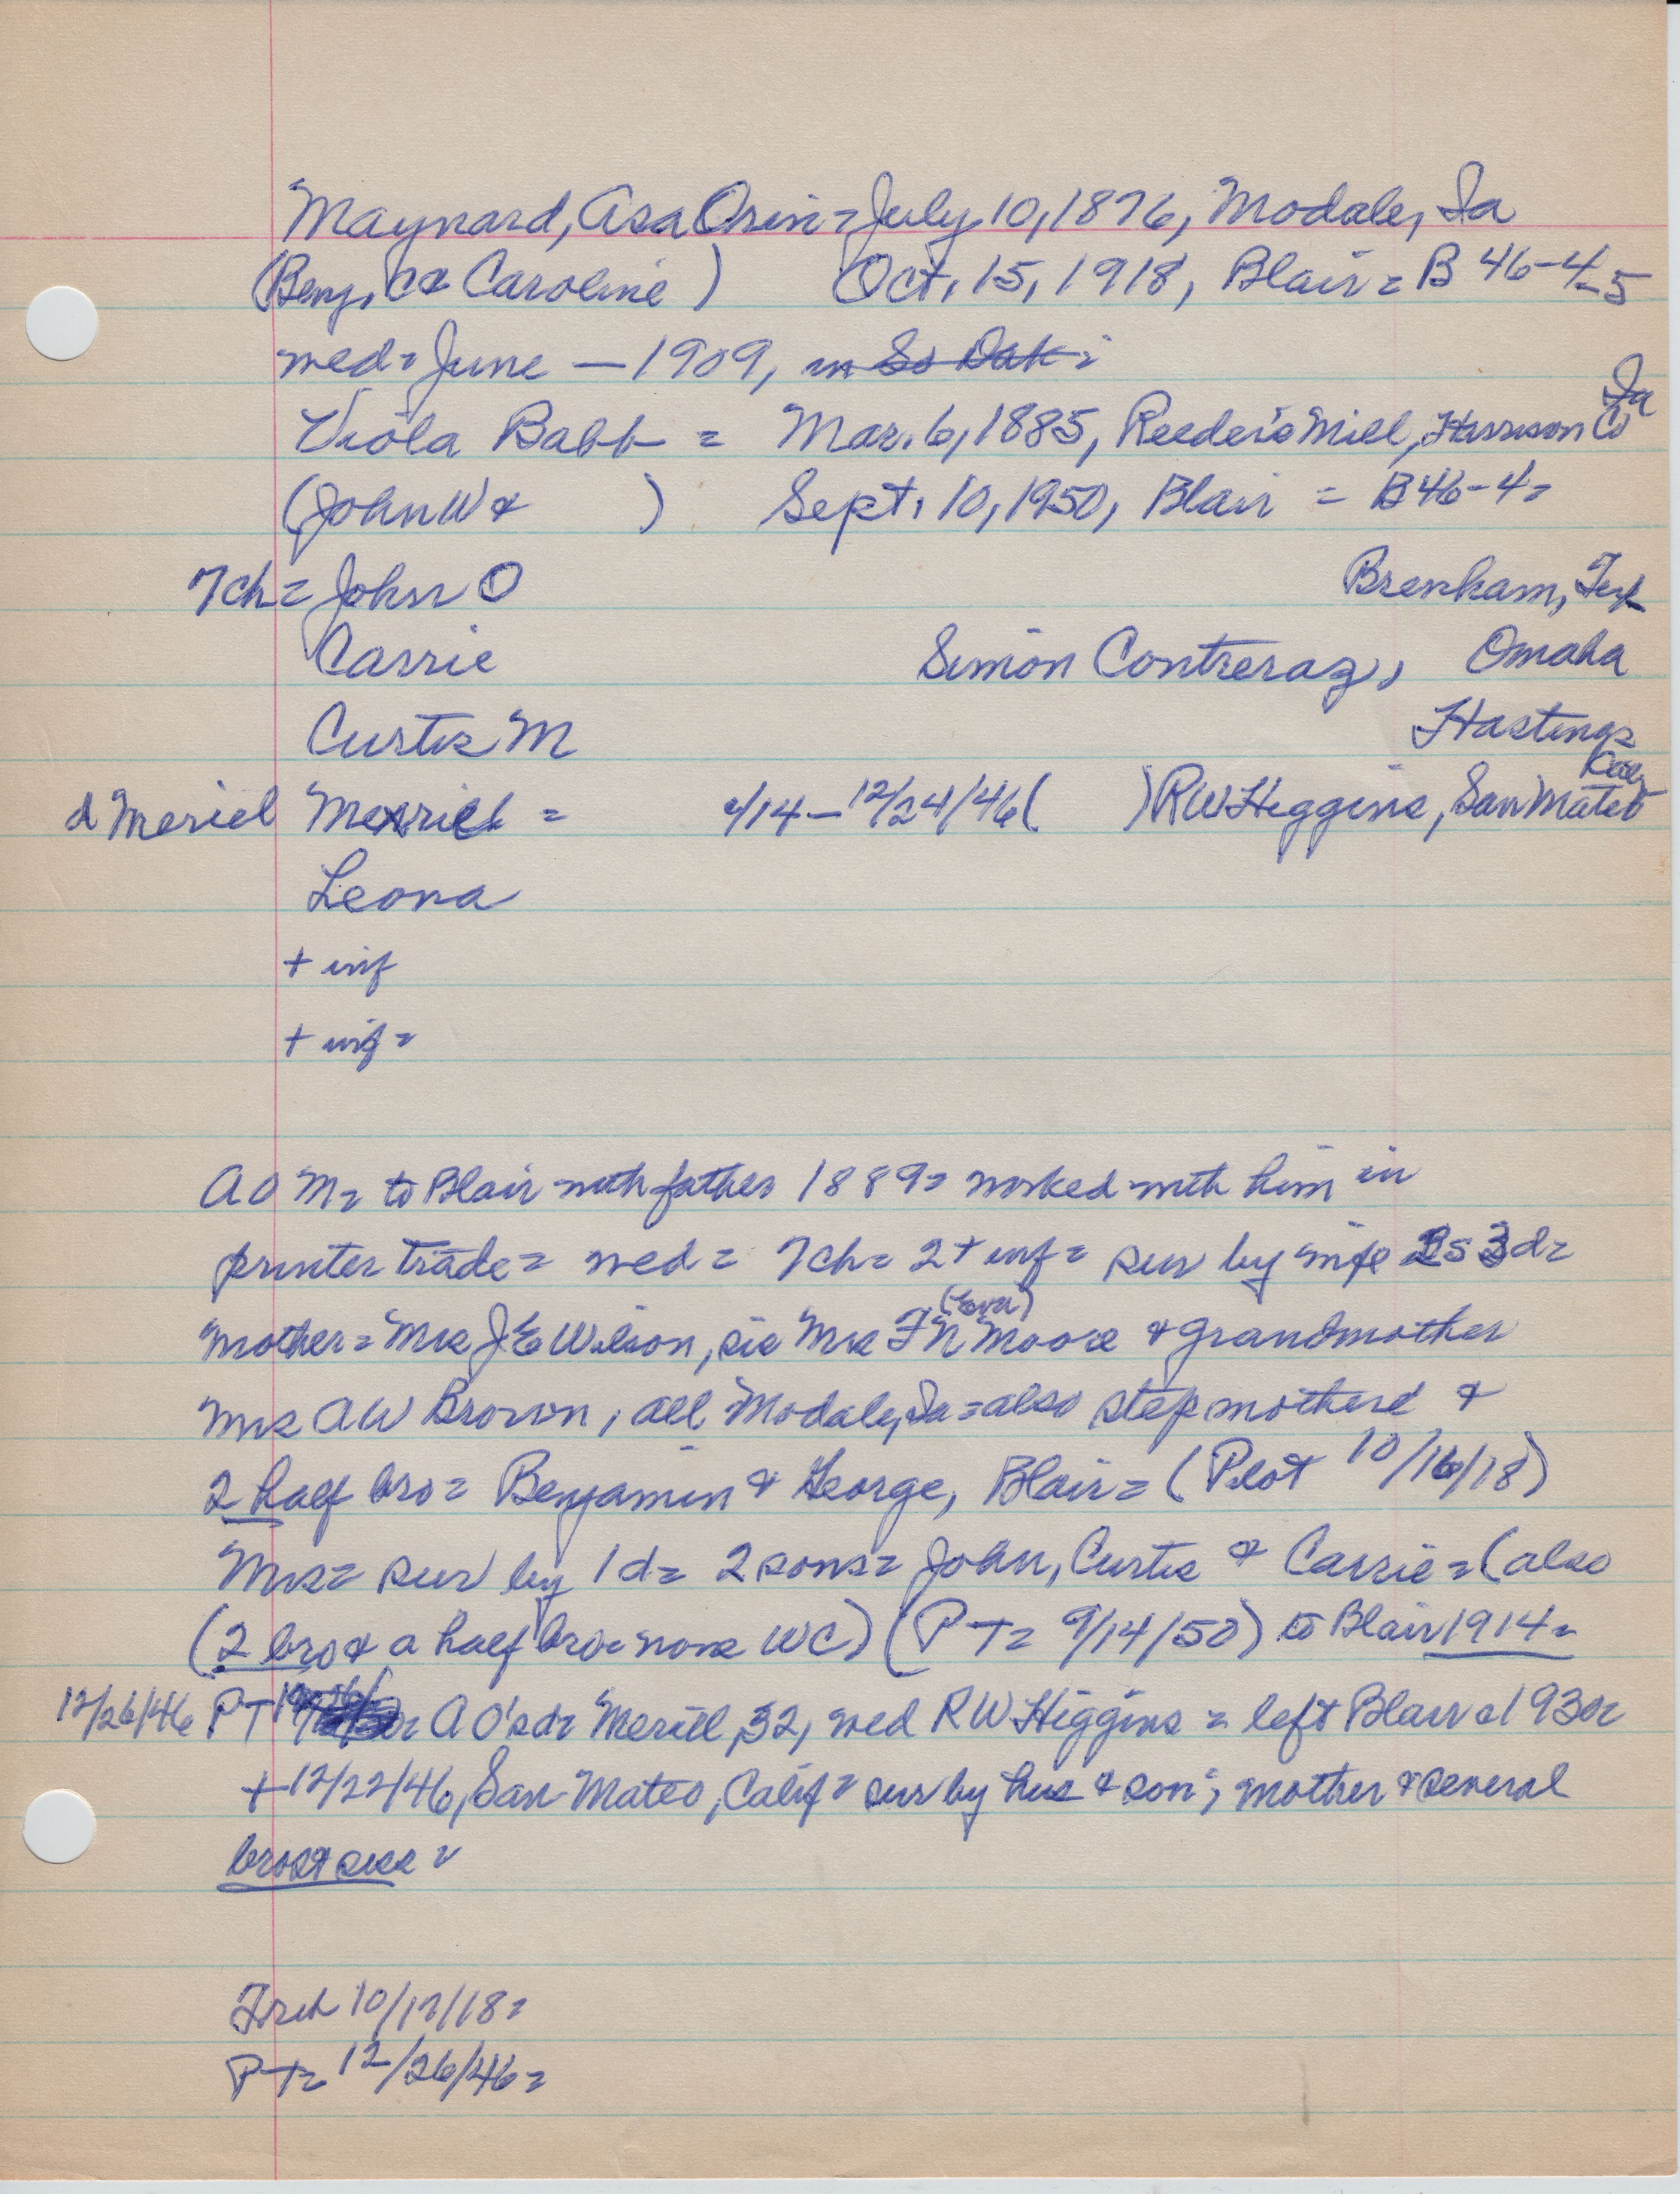 Maynard, Asa Orin = July 10, 1876, Modale, Ia
(Benj. C & Caroline ) Oct. 15, 1918, Blair = B 46-4-5
wed = June — 1909, in So Dak =
Viola Babb = Mar. 6, 1885, Reeder's Mill, Harrison Co Ia
(John W & ) Sept. 10, 1950, Blair = B 46-4=
7ch = John O Brenham, Tex
Carrie Simon Contreraz, Omaha
Curtis M Hastings
d Meriel Merriel = c/14 – 12/24/46 ( ) RW Higgins, San Mateo Cal
Leona
+ inf
+ inf =
A O M = to Blair with father 1889 = worked with him in
printer trade = wed = 7ch = 2 + inf = sur by wife 2s 3d =
mother = Mrs J E Wilson, sis Mrs F N (Eva) Moore & grandmother
Mrs AW Brown, all Modale, Ia = also stepmother &
2 half bro = Benjamin & George, Blair = (Pilot 10/16/18)
Mrs = sur by 1 d = 2 sons = John, Curtis & Carrie = (also
(2 bro & a half bro = none WC) (PT = 9/14/50) to Blair 1914 =
12/26/46 PT A O's d = Merill, 32, wed RW Higgins = left Blair c1930 =
+ 12/22/46, San Mateo, Calif = sur by hus & son; mother & several
bros & sis =
Trib 10/17/18 =
PT = 12/26/46 =